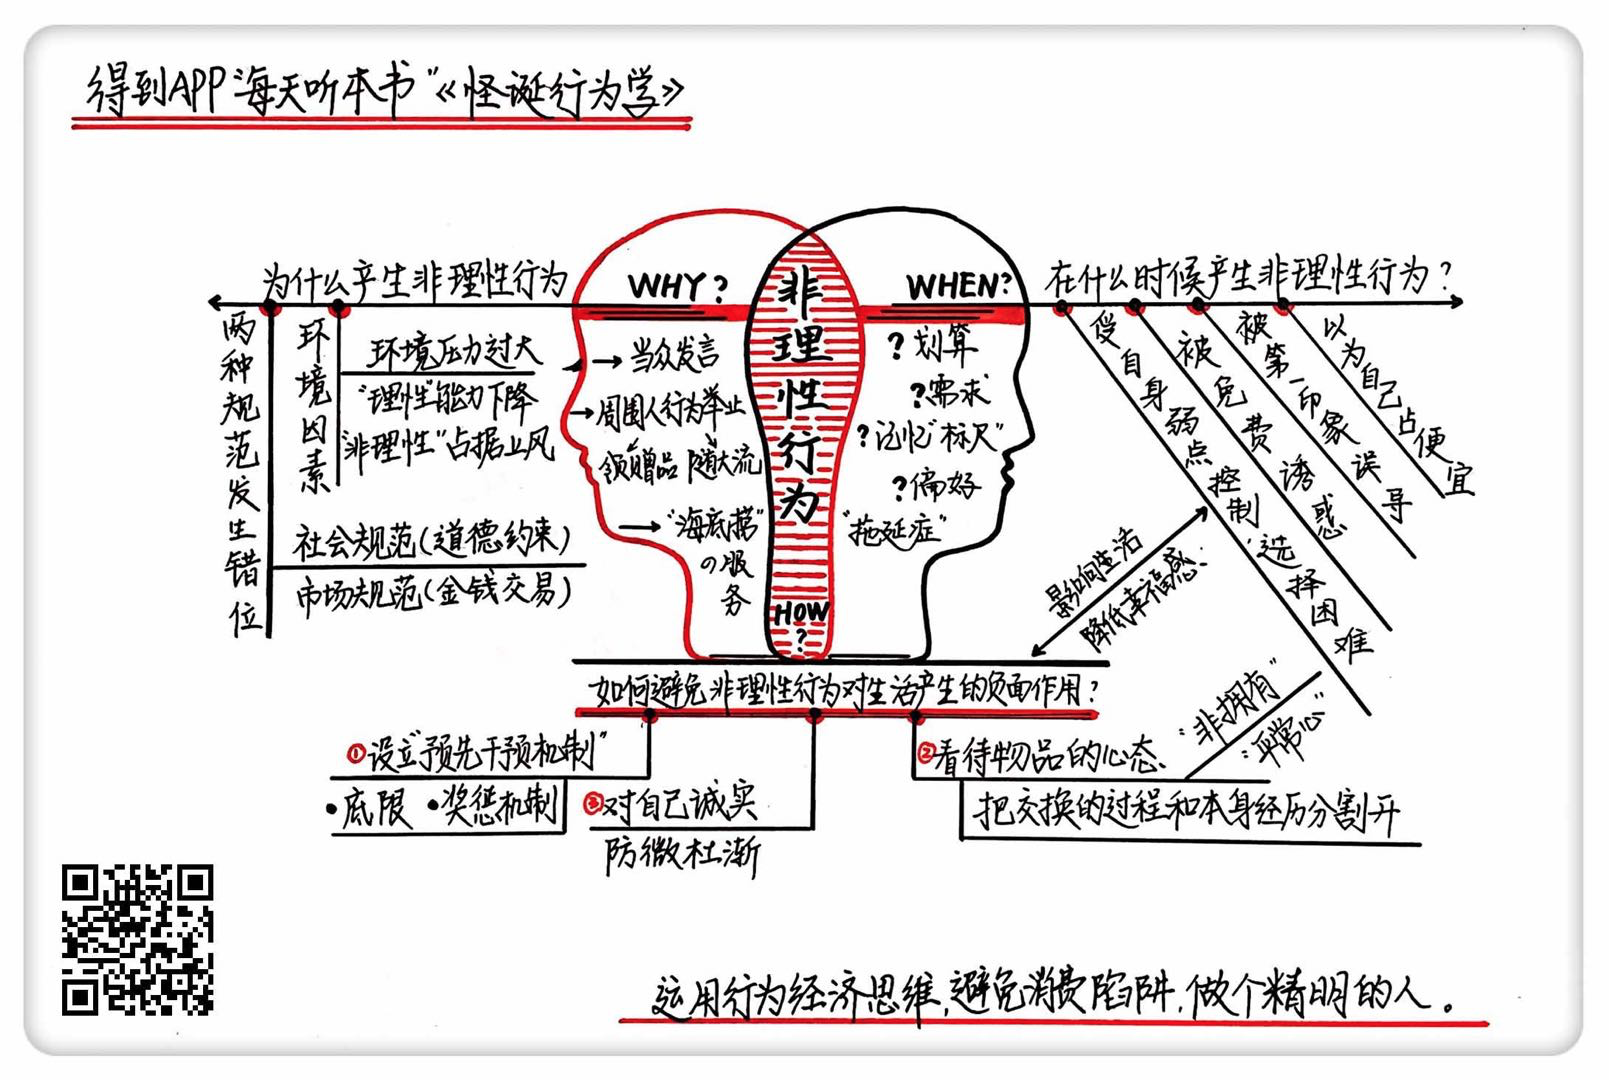 得到APP"每天听本书"《怪诞行为学》
为什么产生非理性行为
WHY?
非理性行为
WHEN?
在什么时候产生非理性行为?
两种规范发生错位
环境因素
环境压力过大
"理性"能力下降
"非理性"占据上风
社会规范(道德约束)
市场规范(金钱交易)
当众发言
周围人行为举止
领赠品 随大流
"海底捞"
の服务
HOW?
?划算
?需求
?记忆"标尺"
?偏好
"拖延症"
受自身弱点控制,选择困难
被免费诱惑
被第一印象误导
以为自己占便宜
影响生活
降低幸福感
如何避免非理性行为对生活产生的负面作用?
①设立"预先干预机制"
·底限 ·奖惩机制
③对自己诚实
防微杜渐
②看待物品的心态
"非拥有"
"平常心"
把交换的过程和本身经历分割开
运用行为经济思维,避免消费陷阱,做个精明的人。